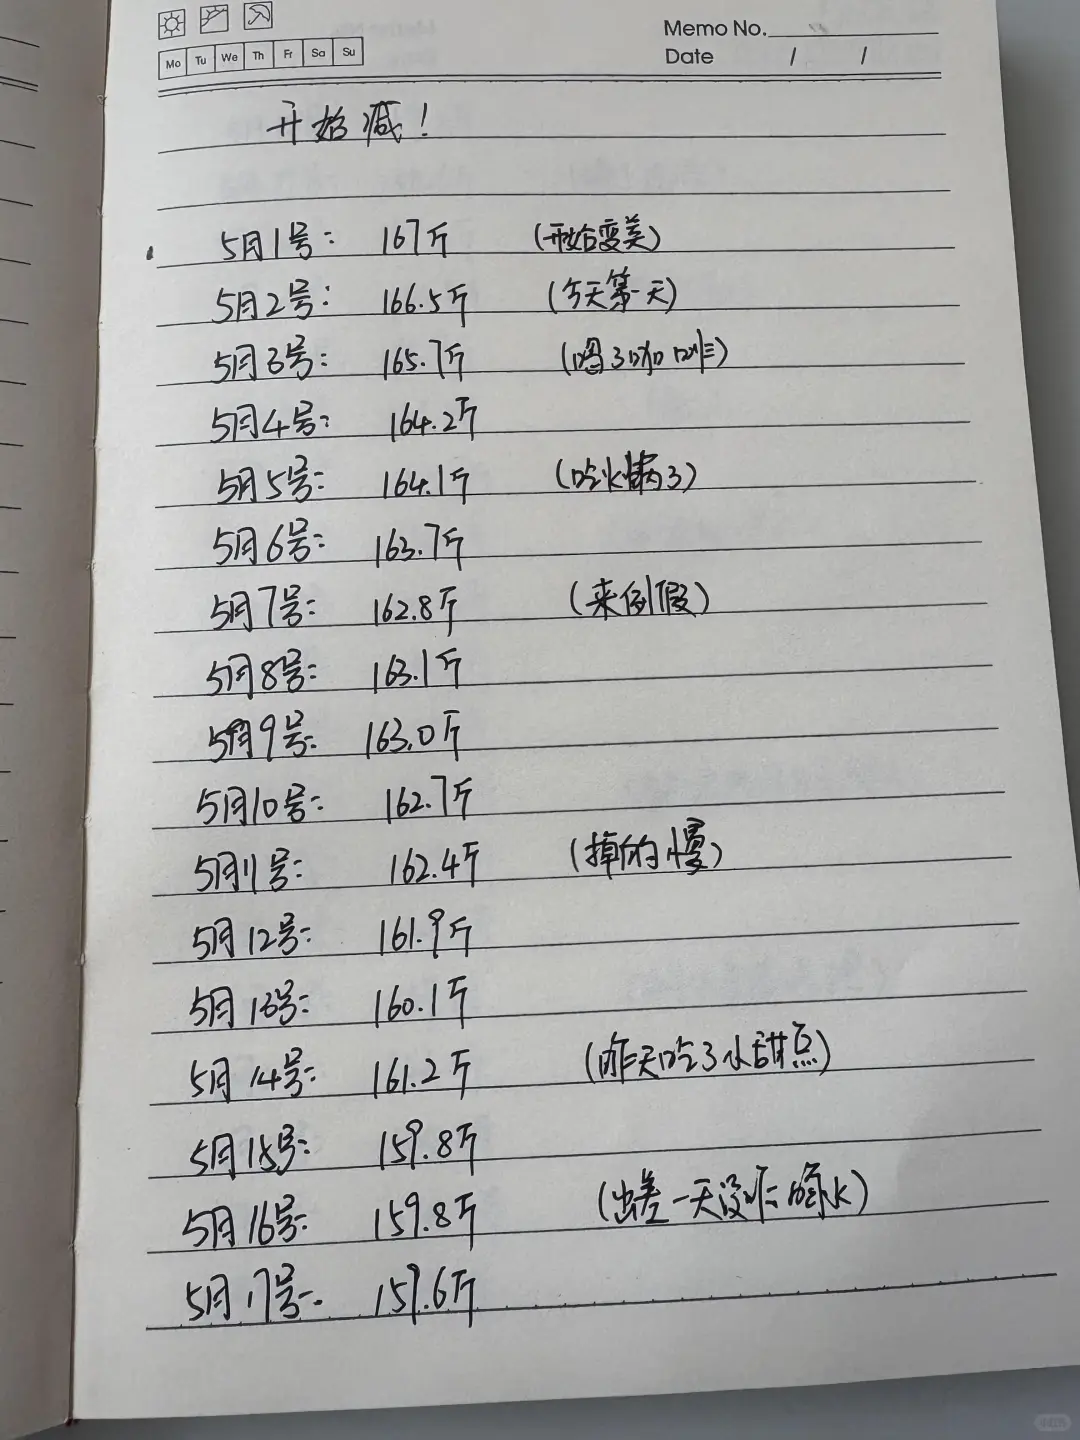 Memo No.
Mo Tu We Th Fr Sa Su
Date / /
开始减！
5月1号： 167斤 （开始变美）
5月2号： 166.5斤 （今天第一天）
5月3号： 165.7斤 （喝了咖啡）
5月4号： 164.2斤
5月5号： 164.1斤 （吃火锅了）
5月6号： 163.7斤
5月7号： 162.8斤 （来例假）
5月8号： 163.1斤
5月9号： 163.0斤
5月10号： 162.7斤
5月11号： 162.4斤 （掉的慢）
5月12号： 161.9斤
5月13号： 160.1斤
5月14号： 161.2斤 （昨天吃了小甜点）
5月15号： 159.8斤
5月16号： 159.8斤 （出差一天没怎么喝水）
5月17号： 159.6斤